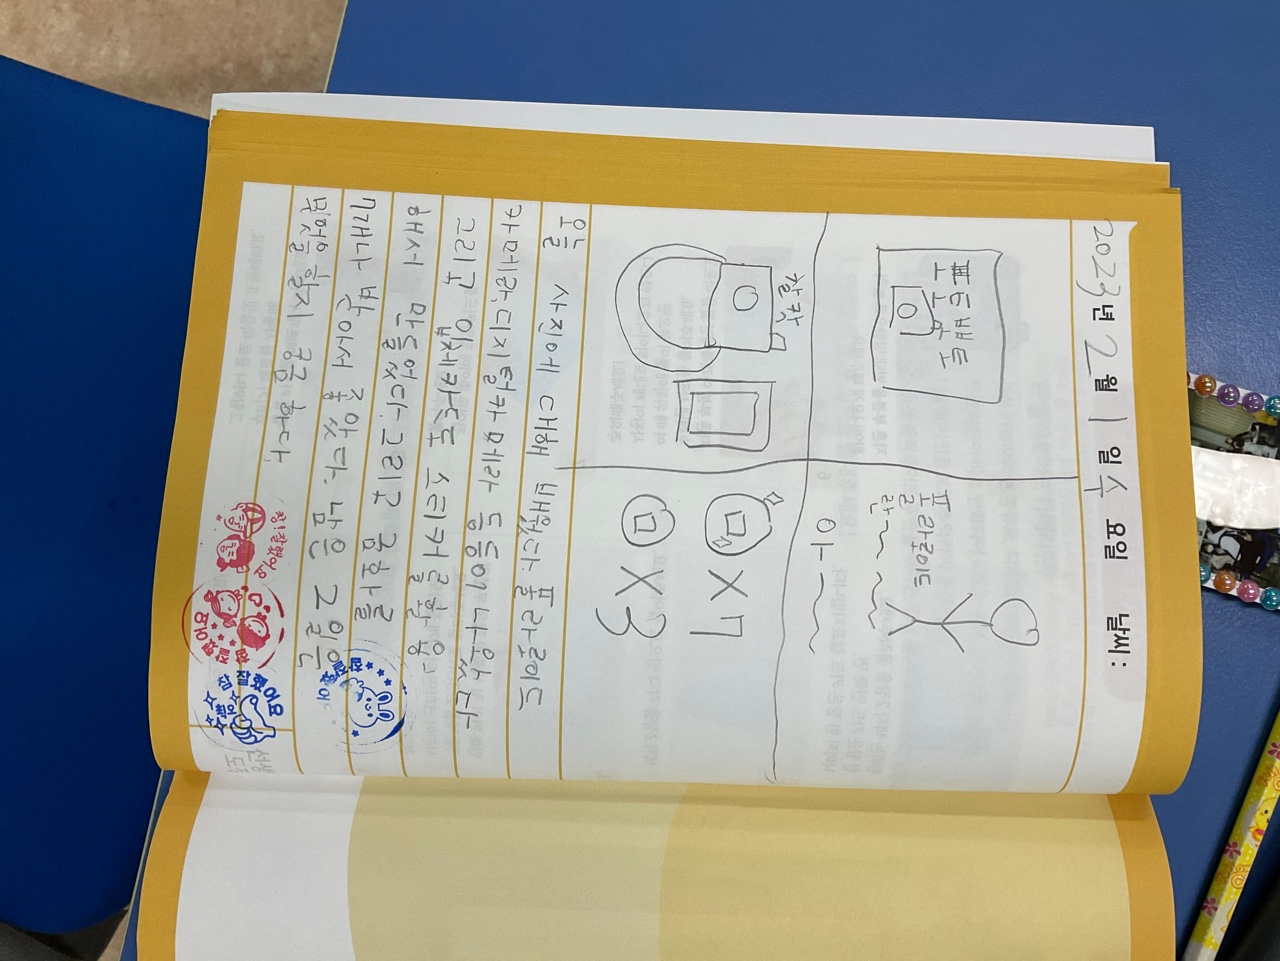 2023년 2월 1일 수요일 날씨:
포토뽀토
폴라로이드
란~~
아~~
찰칵
ㅁ X7
ㅁ X3
오늘 사진에 대해 배웠다. 폴라로이드
카메라, 디지털카메라 등등이 나왔다
그리고 입체카드도 스티커를 활용
해서 만들었다. 그리고 금화를
7개나 받아서 좋았다. 남은 2일은
무엇을 할지 궁금하다.
참!잘했어요
참 잘했어요
선생